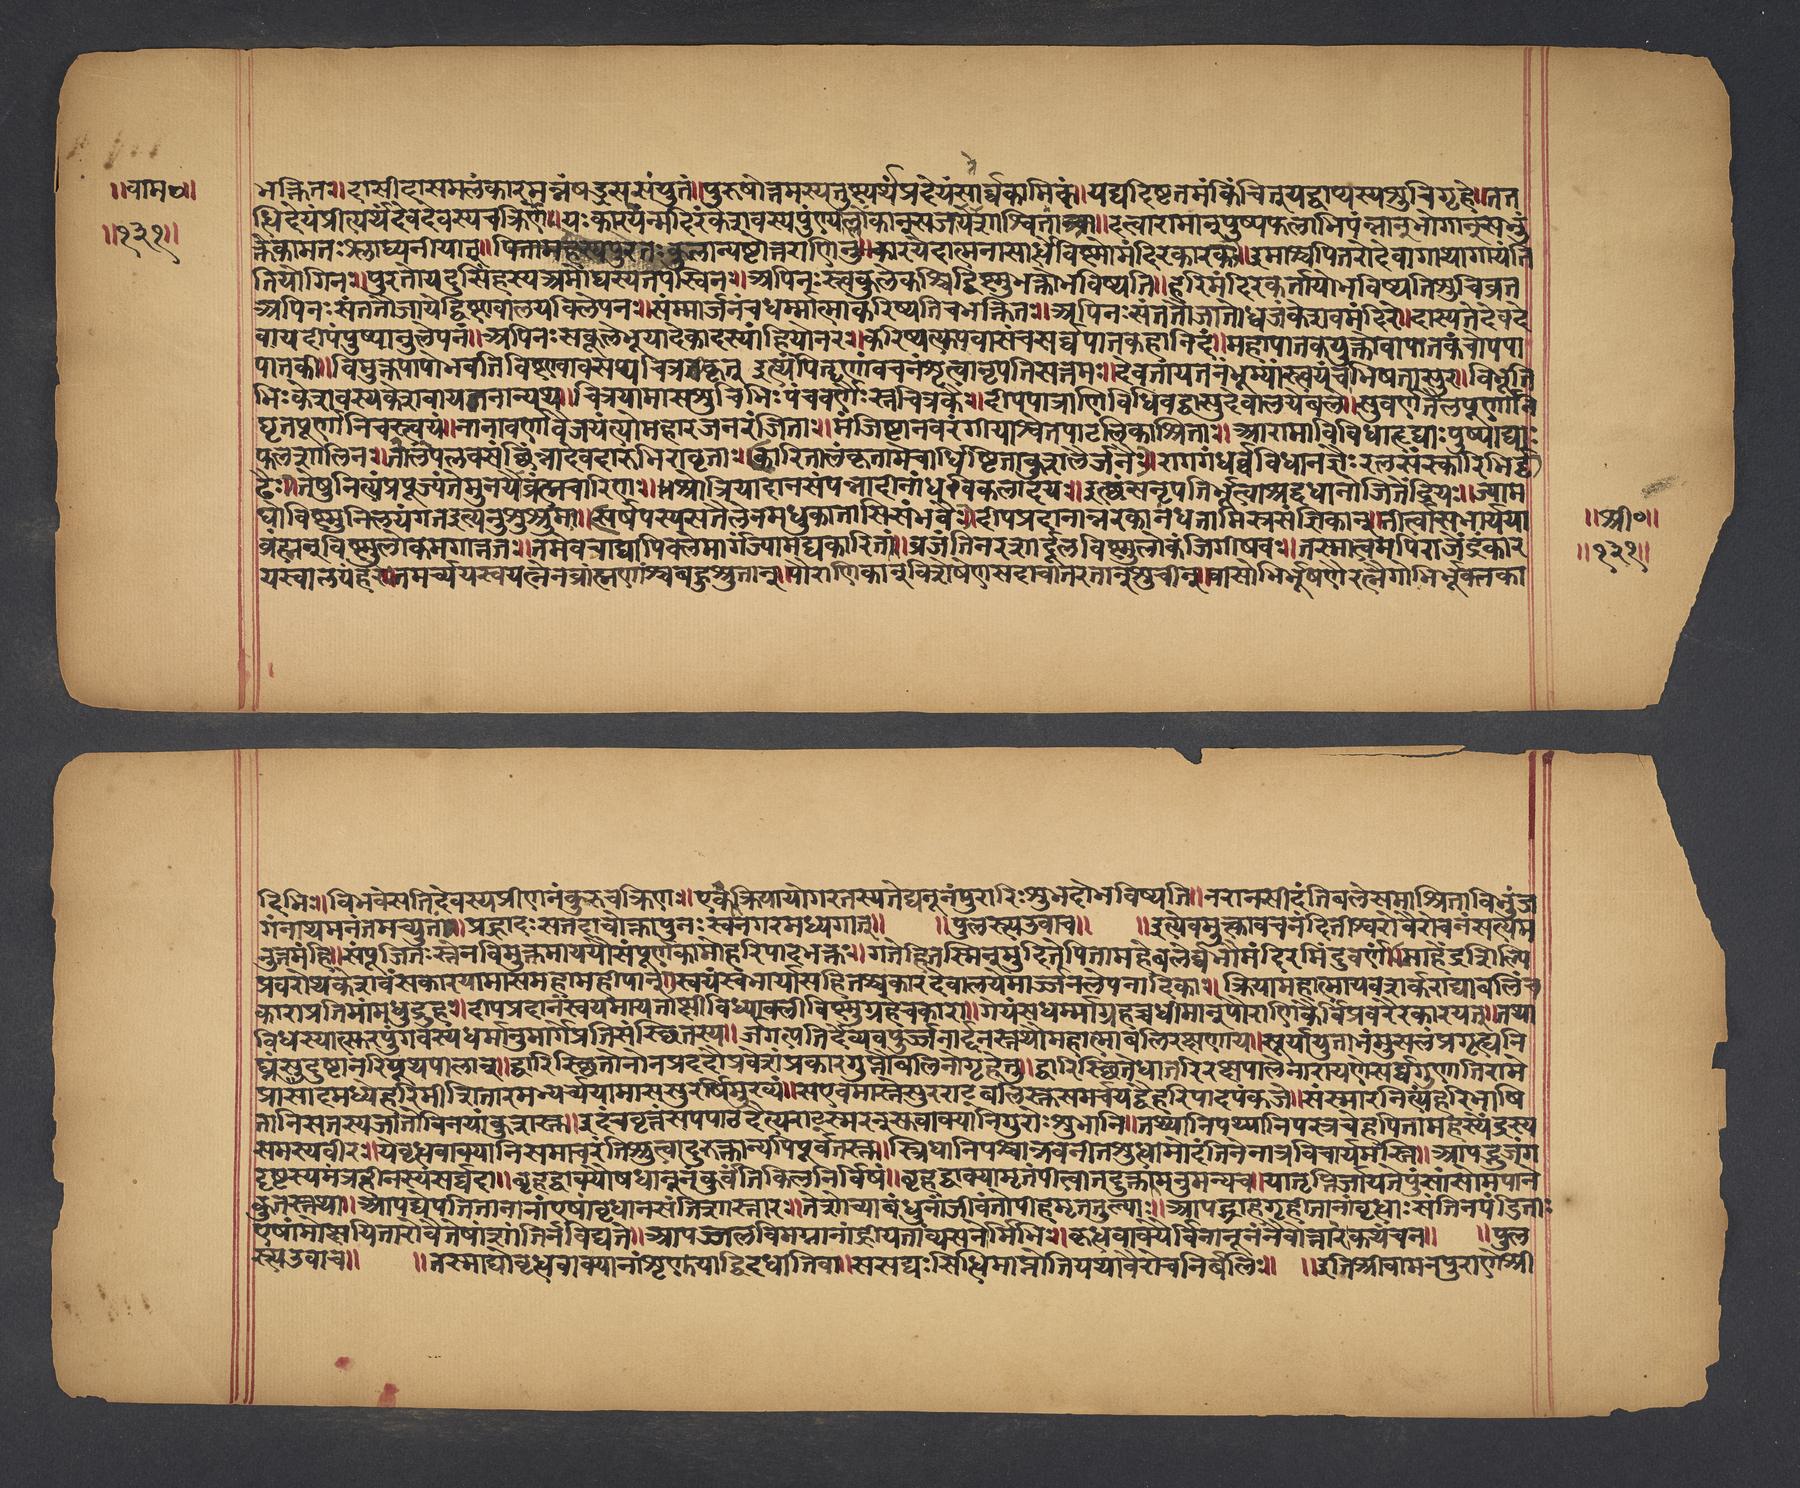 ॥वाम०॥
॥१३१॥
भक्तितः॥दासीदासमलंकारमन्नंषड्रससंयुतं॥पुरुषोत्तमस्यतुष्ट्यर्थंप्रदेयंसार्व्वकामिकं॥यद्यदिष्टतमंकिंचित्यद्वाप्यस्यशुचिगृहे॥तत
द्धिदेयंप्रीत्यर्थंदेवदेवस्यचक्रिणः॥यःकारयेन्मंदिरंकेशवस्यपुण्यांल्लोकान्सजयेशाश्वतान्वा॥दत्वारामान्पुष्पफलाभिपंन्नान्भोगान्भुं
क्तेकामतःश्लाघ्यनीयान्॥पितामहस्यपुरतःकुलान्यष्टोत्तराणितु॥कारयेदात्मनासार्धंविष्णोर्मंदिरकारकः॥इमाश्चपितरोदेवागाथागायंति
तियोगिनः॥पुरतोयदुसिंहस्यअमोघस्यतपस्विनः॥अपिनःस्वकुलेकश्चिद्विष्णुभक्तोभविष्यति॥हरिमंदिरकर्तायोभविष्यतिशुचिव्रत
अपिनःसंततौजायेद्विष्णवालयविलेपनः॥संम्मार्जनंचधर्म्मात्माकरिष्यतिचभक्तितः॥अपिनःसंततौजातोध्वजंकेशवमंदिरे॥दास्यतेदेवदे
वायदीपंपुष्पानुलेपनं॥अपिनःसकुलेभूयादेकादस्यांहियोनरः॥करिष्यत्युपवासंचसर्व्वपातकहानिदं॥महापातकयुक्तोवापातकंचोपपा
पातकी॥विमुक्तपापोभवतिविष्णवावसप्यचित्रकृत् इत्थंपितॄणांवचनंश्रुत्वानृपतिसत्तमः॥देवतायतनंभूम्यांस्वयंचभिषतासुर॥विभूति
भिःकेशवस्यकेशवायतनान्यथ॥चित्रयामासशुचिभिःपंचवर्णैःस्तचित्रकैः॥दीपपात्राणिविधिवद्वासुदेवालयेबले॥सुवर्णतैलपूर्णानि
घृतपूर्णानिचस्वयं॥नानावर्णावैजयंत्योमहारजनरंजिताः॥मंजिष्टानवरंगीयाश्वेतपाटलिकाश्रिताः॥आरामाविविधाहृद्याःपुष्पाढ्याः
फलशालिनः॥लतापलवसंछिन्नादेवदारुभिरावृताः॥कारितालंकृतामंचाधिष्टिताकुशलैर्जनैः॥रागगंधर्वविधानज्ञैःरत्नसंस्कारिभिर्दृ
ढैः॥तेषुनित्यंप्रपूज्यंतेमुनयोब्रह्मचारिणः॥श्रोत्रियादानसंपन्नादीनांधविकलादयः॥इत्थंसनृपतिर्भूत्वाश्रद्दधानोजितेंद्रियः॥ज्याम
घोविष्णुनिलयंगतइत्यनुशुश्रुमः॥सर्षपस्यसतैलेनमधुकातसिसंभवैः॥दीपप्रदानान्नरकानंधतामिस्रसंज्ञिकान्॥तीर्त्वासभार्यया
ब्रह्मन्विष्णुलोकमगात्ततः॥तमेवचाद्यापिबलेमार्गंज्यामघकारितं॥व्रजंतिनरशार्दूलविष्णुलोकंजिगीषवः॥तस्मात्वमपिराजेंद्रकार
यस्वालयंहरेः॥तमर्च्चयस्वयत्नेनब्राह्मणांश्चबहुश्रुतान्॥पौराणिकान्विशेषेणसदाचाररतान्शुचीन्॥वासोभिर्भूषणैरत्नैर्गोभिर्भूकनका
॥श्री०॥
॥१३१॥
दिभिः॥विभवेसतिदेवस्यप्रीणनंकुरुचक्रिणः॥एवंक्रियायोगरतस्यतेद्यनूनंपुरारिःशुभदोभविष्यति॥नरानसीदंतिबलेसमाश्रिताविभुंज
गंनाथमनंतमच्युतं॥प्रह्लादःसतदाचोक्तापुनःस्वंनगरमध्यगात्॥ ॥पुलस्त्यउवाच॥ ॥इत्येवमुक्तावचनंदितीश्वरोवैरोचनंसत्यम
नुत्तमंहि॥संपूजितस्तेनविमुक्तमाययौसंपूर्णकामोहरिपादभक्तः॥गतेहितस्मिन्मुदितेपितामहेबलेर्व्वभौमंदिरमिंदुवर्णं॥माहेंद्रशिल्पि
प्रवरोथकेशवंसकारयामासमहामहीपान्॥स्वयंस्वभार्यासहितश्चकारदेवालयेमार्ज्जनलेपनादिकाः॥क्रियामहात्मायवशर्कराद्याबलिंच
काराप्रतिमांमधुद्रुहः॥दीपप्रदानंस्वयमायताक्षीविंध्यावलीविष्णुगृहेचकारः॥गेयंसधर्म्म्याग्रहच्चधीमान्पौराणिकैर्विप्रवरैरकारयत्॥तथा
विधस्यात्सरपुंगवस्यधर्मानुमार्गेप्रतिसंस्छितस्य॥जगत्पतिर्दिव्यवपुर्ज्जनार्दनस्तस्थौमहात्माबलिरक्षणाय॥सूर्यायुताभंमुसलंप्रगृह्यनि
घ्नंसुदुष्टानरियूथपालान्॥द्वारिस्छितोनानप्रददौप्रवेशंप्रकारगुप्तोबलिनोगृहेतु॥द्वारिस्छितेधातरिरक्षपालेनारायणेसर्व्वगुणाभिरामे
प्रासादमध्येहरिमीशितारमभ्यर्चयामाससुरर्षिमुख्यं॥सएवमास्तेसुरराट्बलिस्तसमर्चयद्वैहरिपादपंकजे॥संस्मारनित्यंहरिभाषि
तानिसतस्यजातोविनयांकुशस्त॥इदंचवृत्तंसपपाठदैत्यराट्स्मरन्सुवाक्यानिगुरोःशुभानि॥तथ्यानिपथ्यानिपरत्रचेहपितामहस्येंद्रस्य
समस्यवीरः॥येवृधवाक्यानिसमाचरंतिश्रुत्वादुरुक्तान्यपिपूर्वतस्त॥स्निधानिपश्चान्नवनीतशुध्धामोदंतितेनात्रविचार्यमस्ति॥आपद्भुजंग
दृष्टस्यमंत्रहीनस्यसर्व्वदा॥वृहद्वाक्योषधान्नूनंकुर्वंतिकिलनिर्विषं॥वृहद्वाक्यामृतंपीत्वातदुक्तामनुमन्यच॥यातृप्तिर्जायतेपुंसांसोमपाने
कुतस्तथा॥आपद्येपतितानांनांयेषांवृधानसंतिशास्तारः॥तेशोच्याबंधूनांजीवंतोपीहमृततुल्याः॥आपद्ग्राहगृहीतानांवृधाःसंतिनपंडिताः
एषांमोक्षयितारोवैतेषांशांतिर्नविद्यते॥आपज्जलविमग्नानांह्रीयतोव्यसनोर्मिभिः॥वृधवाक्यैर्विनानूनंनैवोत्तारंकथंचन॥ ॥पुल
स्त्यउवाच॥ ॥तस्माद्योवृध्धवाक्यानांशृणुयाद्विदधातिवा॥ससद्यःसिधिमाप्नोतियथावैरोचनिर्बलिः॥ ॥इतिश्रीवामनपुराणेश्री